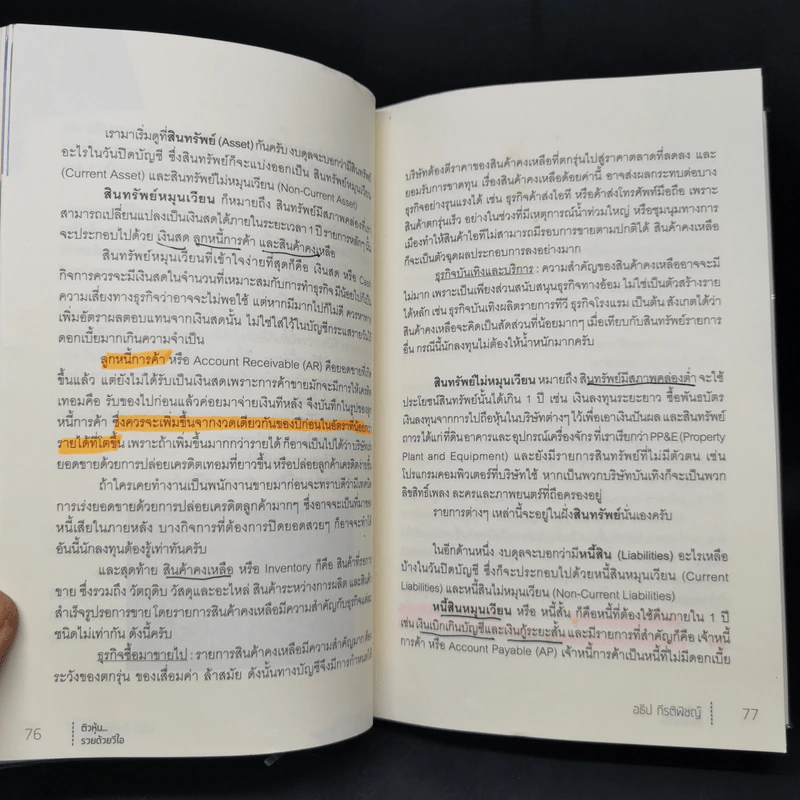 เรามาเริ่มดูที่สินทรัพย์ (Asset) กันครับ งบดุลจะบอกว่ามีสินทรัพย์
อะไรในวันปิดบัญชี ซึ่งสินทรัพย์ก็จะแบ่งออกเป็น สินทรัพย์หมุนเวียน
(Current Asset) และสินทรัพย์ไม่หมุนเวียน (Non-Current Asset)
สินทรัพย์หมุนเวียน ก็หมายถึง สินทรัพย์มีสภาพคล่องที่เรา
สามารถเปลี่ยนแปลงเป็นเงินสดได้ภายในระยะเวลา 1 ปี รายการหลักๆ นั้น
จะประกอบไปด้วย เงินสด ลูกหนี้การค้า และสินค้าคงเหลือ
สินทรัพย์หมุนเวียนที่เข้าใจง่ายที่สุดก็คือ เงินสด หรือ Cash
กิจการควรจะมีเงินสดในจำนวนที่เหมาะสมกับการทำธุรกิจ มีน้อยไปก็เป็น
ความเสี่ยงทางธุรกิจว่าอาจจะไม่พอใช้ แต่หากมีมากไปก็ไม่ดี ควรหาทาง
เพิ่มอัตราผลตอบแทนจากเงินสดนั้น ไม่ใช่ใส่ไว้ในบัญชีกระแสรายวันไม่มี
ดอกเบี้ยมากเกินความจำเป็น
ลูกหนี้การค้า หรือ Account Receivable (AR) คือยอดขายที่เกิด
ขึ้นแล้ว แต่ยังไม่ได้รับเป็นเงินสดเพราะการค้าขายมักจะมีการให้เครดิต
เทอมคือ รับของไปก่อนแล้วค่อยมาจ่ายเงินทีหลัง จึงบันทึกในรูปของลูก
หนี้การค้า ซึ่งควรจะเพิ่มขึ้นจากงวดเดียวกันของปีก่อนในอัตราที่น้อยกว่า
รายได้ที่โตขึ้น เพราะถ้าเพิ่มขึ้นมากกว่ารายได้ ก็อาจเป็นไปได้ว่าบริษัท
ยอดขายด้วยการปล่อยเครดิตเทอมที่ยาวขึ้น หรือปล่อยลูกค้าเครดิตง่ายขึ้น
ถ้าใครเคยทำงานเป็นพนักงานขายมาก่อนจะทราบดีว่ามีเทคนิค
การเร่งยอดขายด้วยการปล่อยเครดิตลูกค้ามากๆ ซึ่งอาจจะเป็นที่มาของ
หนี้เสียในภายหลัง บางกิจการที่ต้องการปิดยอดสวยๆ ก็อาจจะทำได้
อันนี้นักลงทุนต้องรู้เท่าทันครับ
และสุดท้าย สินค้าคงเหลือ หรือ Inventory ก็คือ สินค้าที่รอการ
ขาย ซึ่งรวมถึง วัตถุดิบ วัสดุและอะไหล่ สินค้าระหว่างการผลิต และสินค้า
สำเร็จรูปรอการขาย โดยรายการสินค้าคงเหลือมีความสำคัญกับธุรกิจแต่ละ
ชนิดไม่เท่ากัน ดังนี้ครับ
ธุรกิจซื้อมาขายไป : รายการสินค้าคงเหลือมีความสำคัญมาก ต้อง
ระวังของตกรุ่น ของเสื่อมค่า ล้าสมัย ดังนั้นทางบัญชีจึงมีการกำหนดให้
76
ติวหุ้น...
รวยด้วยวีไอ
บริษัทต้องตีราคาของสินค้าคงเหลือที่ตกรุ่นไปสู่ราคาตลาดที่ลดลง และ
ยอมรับการขาดทุน เรื่องสินค้าคงเหลือด้อยค่านี้ อาจส่งผลกระทบต่อบาง
ธุรกิจอย่างรุนแรงได้ เช่น ธุรกิจค้าส่งไอที หรือค้าส่งโทรศัพท์มือถือ เพราะ
สินค้าตกรุ่นเร็ว อย่างในช่วงที่มีเหตุการณ์น้ำท่วมใหญ่ หรือชุมนุมทางการ
เมืองทำให้สินค้าไอทีไม่สามารถมีรอบการขายตามปกติได้ สินค้าคงเหลือ
ก็จะเป็นตัวฉุดผลประกอบการลงอย่างมาก
ธุรกิจบันเทิงและบริการ : ความสำคัญของสินค้าคงเหลืออาจจะมี
ไม่มาก เพราะเป็นเพียงส่วนสนับสนุนธุรกิจทางอ้อม ไม่ใช่เป็นตัวสร้างราย
ได้หลัก เช่น ธุรกิจบันเทิงผลิตรายการทีวี ธุรกิจโรงแรม เป็นต้น สังเกตได้ว่า
สินค้าคงเหลือจะคิดเป็นสัดส่วนที่น้อยมากๆ เมื่อเทียบกับสินทรัพย์รายการ
อื่น กรณีนี้นักลงทุนไม่ต้องให้น้ำหนักมากครับ
สินทรัพย์ไม่หมุนเวียน หมายถึง สินทรัพย์มีสภาพคล่องต่ำ จะใช้
ประโยชน์สินทรัพย์นั้นได้เกิน 1 ปี เช่น เงินลงทุนระยะยาว ซื้อพันธบัตร
เงินลงทุนจากการไปถือหุ้นในบริษัทต่างๆไว้เพื่อเอาเงินปันผล และสินทรัพย์
ถาวรได้แก่ที่ดินอาคารและอุปกรณ์เครื่องจักรที่เราเรียกว่าPP&E (Property
Plant and Equipment) และยังมีรายการสินทรัพย์ที่ไม่มีตัวตน เช่น
โปรแกรมคอมพิวเตอร์ที่บริษัทใช้ หากเป็นพวกบริษัทบันเทิงก็จะเป็นพวก
ลิขสิทธิ์เพลง ละครและภาพยนตร์ที่ถือครองอยู่
รายการต่างๆ เหล่านี้จะอยู่ในฝั่งสินทรัพย์นั่นเองครับ
ในอีกด้านหนึ่ง งบดุลจะบอกว่ามีหนี้สิน (Liabilities) อะไรเหลือ
บ้างในวันปิดบัญชี ซึ่งก็จะประกอบไปด้วยหนี้สินหมุนเวียน (Current
Liabilities) และหนี้สินไม่หมุนเวียน (Non-Current Liabilities)
หนี้สินหมุนเวียน หรือ หนี้สั้น ก็คือหนี้ที่ต้องใช้คืนภายใน 1 ปี
เช่น เงินเบิกเกินบัญชีและเงินกู้ระยะสั้น และมีรายการที่สำคัญก็คือ เจ้าหนี้
การค้า หรือ Account Payable (AP) เจ้าหนี้การค้าเป็นหนี้ที่ไม่มีดอกเบี้ย
อธิป กีรติพิชญ์
77